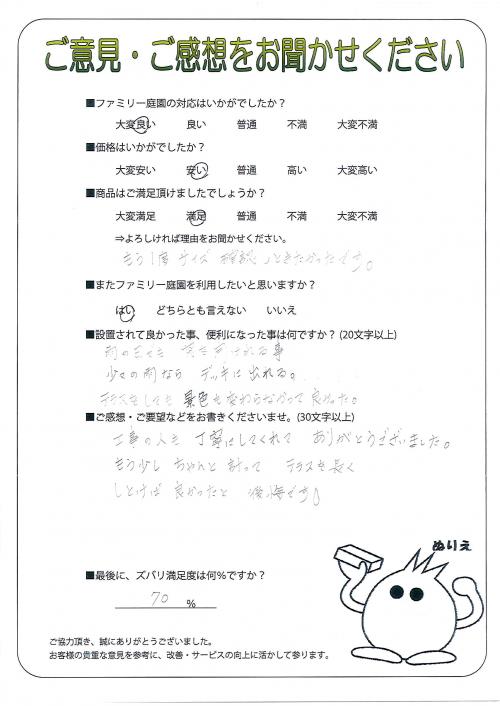 ご意見・ご感想をお聞かせください
■ファミリー庭園の対応はいかがでしたか？
大変良い 良い 普通 不満 大変不満
■価格はいかがでしたか？
大変安い 安い 普通 高い 大変高い
■商品はご満足頂けましたでしょうか？
大変満足 満足 普通 不満 大変不満
⇒よろしければ理由をお聞かせください。
もう1度サイズ確認しときたかったです。
■またファミリー庭園を利用したいと思いますか？
はい どちらとも言えない いいえ
■設置されて良かった事、便利になった事は何ですか？(20文字以上)
雨の日でも 窓を開けれる事
少々の雨なら デッキに出れる。
テラスをしても 景色も変わらなかって良かった。
■ご感想・ご要望などをお書きくださいませ。(30文字以上)
工事の人も 丁寧にしてくれて ありがとうございました。
もう少し ちゃんと計って テラスを長く
しとけば 良かったと 後悔です
■最後に、ズバリ満足度は何%ですか？
70 %
ぬりえ
ご協力頂き、誠にありがとうございました。
お客様の貴重な意見を参考に、改善・サービスの向上に活かして参ります。